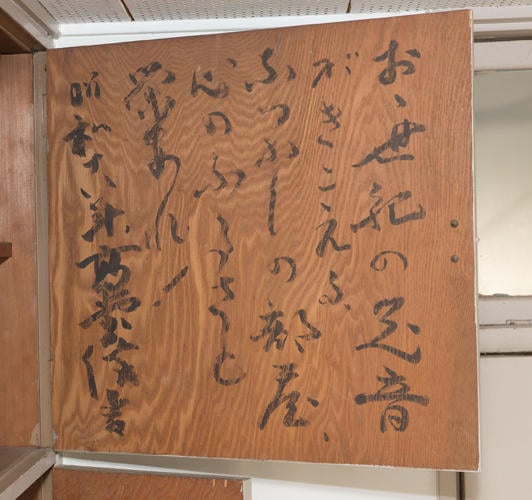 おゝ世紀の足音
がきこえる、
ふつかしの部屋、
心のふるさとも
栄あれ！
昭和六年